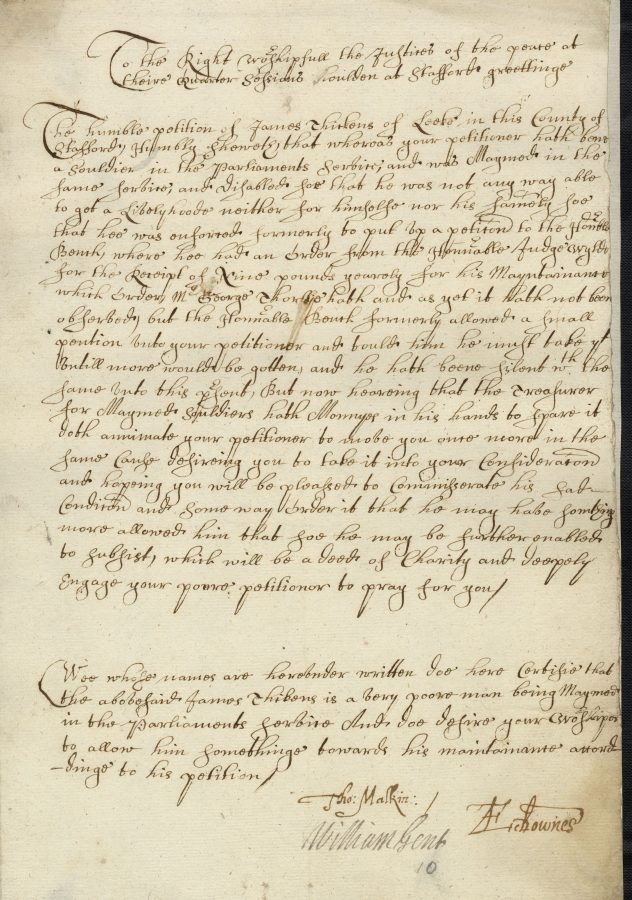 To the Right Worshipfull the Justices of the peace at
theire Quarter Sessions houlden at Stafford greettinge
The humble petition of James Thickens of Leeke in this County of
Stafford, Humbly Sheweth, that whereas your petitioner hath bene
a Souldier in the Parliaments service, and was Maymed in the
same service, and disabled soe that he was not any way able
to get a Livelyhoode neither for himselfe nor his famely soe
that hee was enforced formerly to put up a peticon to the Honble
Bench, where hee had an Order from the Honnable Judge Wylde
for the Receipt of Nine pounds yearely for his Mayntainance
which Order, Mr George Thorley hath and as yet it hath not been
observed, but the Honnable Bench formerly allowed a small
pention unto your petitioner and tould him he must take yt
Untill more would be gotten, and he hath beene silent wth the
same unto this prsent, But now heareing that the Treasurer
for Maymed Souldiers hath Monnyes in his hands to spare it
doth annimate your petitioner to move you once more in the
same Cause desireing you to take it into your Consideracon
and hopeing you will be pleased to Commisserate his sad
Condicon and some way Order it that he may have somthing
more allowed him that soe he may be further enabled
to subsist, which will be a deed of Charity and deepely
Engage your poore petitioner to pray for you/
Wee whose names are hereunder written doe here Certifie that
the abovesaid James Thikens is a very poore man being Maymed
in the Parliaments service And doe desire your Worshipps
to allow him somethinge towards his maintainance accord
-dinge to his petition/
Tho: Malkin:/
Downes
William Gent
10